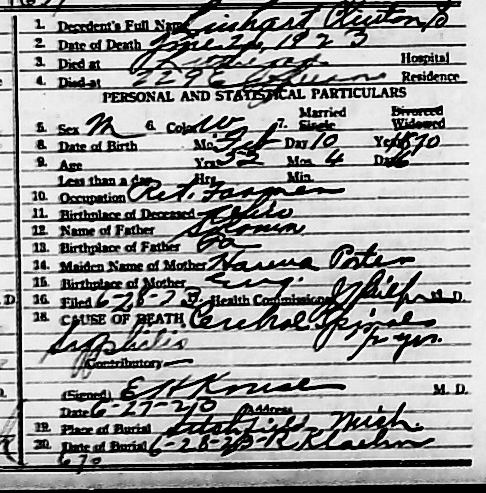 1. Decedent's Full Name Linhart Clinton B
2. Date of Death June 26, 1923
3. Died at Hospital
4. Died at 229 E Residence
PERSONAL AND STATISTICAL PARTICULARS
5. Sex M 6. Color W 7. Married Single Divorced Widowed
8. Date of Birth Mo. Feb Day 10 Year 1870
9. Age Yrs. 52 Mos. 4 Da. 16
Less than a day Hrs. Min.
10. Occupation Ret. Farmer
11. Birthplace of Deceased Ohio
12. Name of Father Solomin
13. Birthplace of Father Pa
14. Maiden Name of Mother Porter
15. Birthplace of Mother Eng.
16. Filed 6-28-23. Health Commissioner M. D.
18. CAUSE OF DEATH Cerebral Spinal
Syphilis yr.
Contributory —
(Signed) E H Kruse M. D.
Date 6-27-23 Address
19. Place of Burial Litchfield Mich.
20. Date of Burial 6-28-23 - R. Klaehn